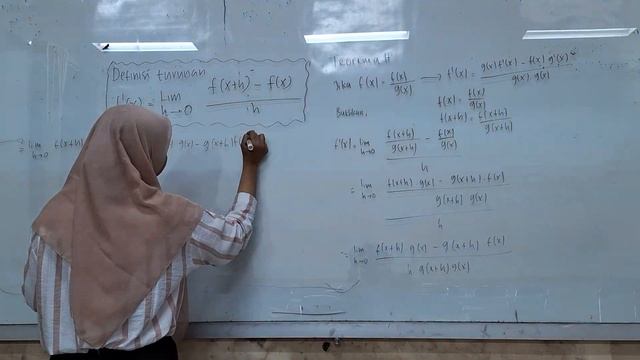 Definisi turunan
f'(x) = lim h→0 f(x+h) - f(x) / h
= lim h→0 f(x+h) g(x) - g(x+h) f
Teorema 4
Jika f(x) = f(x)/g(x) → f'(x) = g(x) f'(x) - f(x) g'(x) / g(x) g(x)
Bukti
f(x) = f(x)/g(x)
f(x+h) = f(x+h)/g(x+h)
f'(x) = lim h→0 f(x+h)/g(x+h) - f(x)/g(x) / h
= lim h→0 f(x+h) g(x) - g(x+h) . f(x) / g(x+h) g(x) / h
= lim h→0 f(x+h) g(x) - g(x+h) f(x) / h g(x+h) g(x)